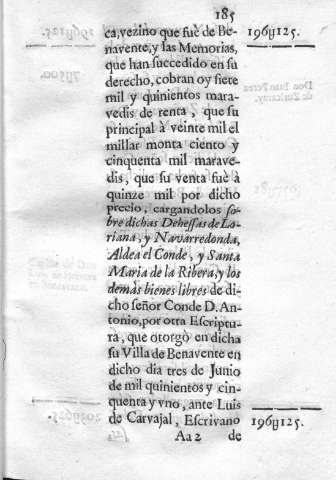 185
ca, vezino que fuè de Be-
navente, y las Memorias,
que han succedido en su
derecho, cobran oy siete
mil y quinientos mara-
vedis de renta, que su
principal à veinte mil el
millar monta ciento y
cinquenta mil marave-
dis, que su venta fuè à
quinze mil por dicho
precio, cargandolos so-
bre dichas Dehessas de Lo-
riana, y Navarredonda,
Aldea el Conde, y Santa
Maria de la Ribera, y los
demàs bienes libres de di-
cho señor Conde D. An-
tonio, por otra Escriptu-
ra, que otorgò en dicha
su Villa de Benavente en
dicho dia tres de Junio
de mil quinientos y cin-
quenta y vno, ante Luis
de Carvajal, Escrivano
Aa 2 de
196y125.
196y125.